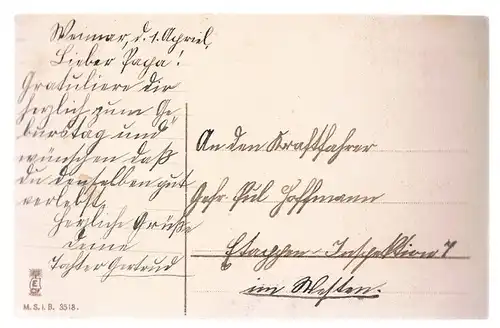 Weimar, d. 1. Apriel,
Lieber Papa!
Gratuliere dir
herzlich zum Ge-
burtstag und
wünschen daß
du denselben gut
verlebst.
Herzliche Grüße
Deine
Tochter Gertrud
An den Kraftfahrer
Gefr. Hoffmann
Etappen-Inspektion 7
im Westen.
M. S. i. B. 3518.